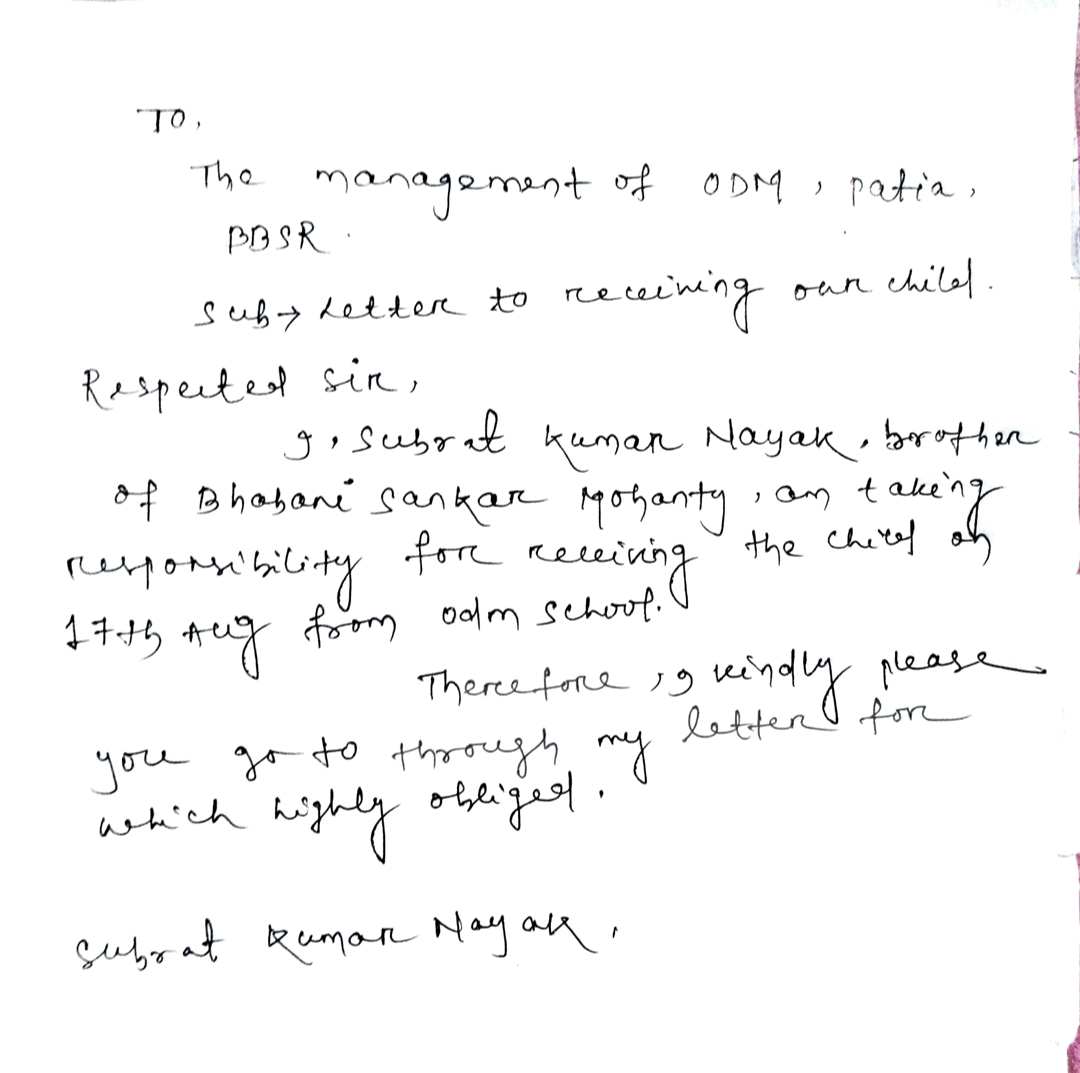 To,
The management of ODM, patia,
BBSR.
Sub→ Letter to receiving our child.
Respected sir,
I, Subrat Kumar Nayak, brother
of Bhabani Sankar Mohanty, am taking
responsibility for receiving the child on
17th Aug from odm school.
Therefore, I kindly please
you go to through my letter for
which highly obliged.
Subrat Kumar Nayak.